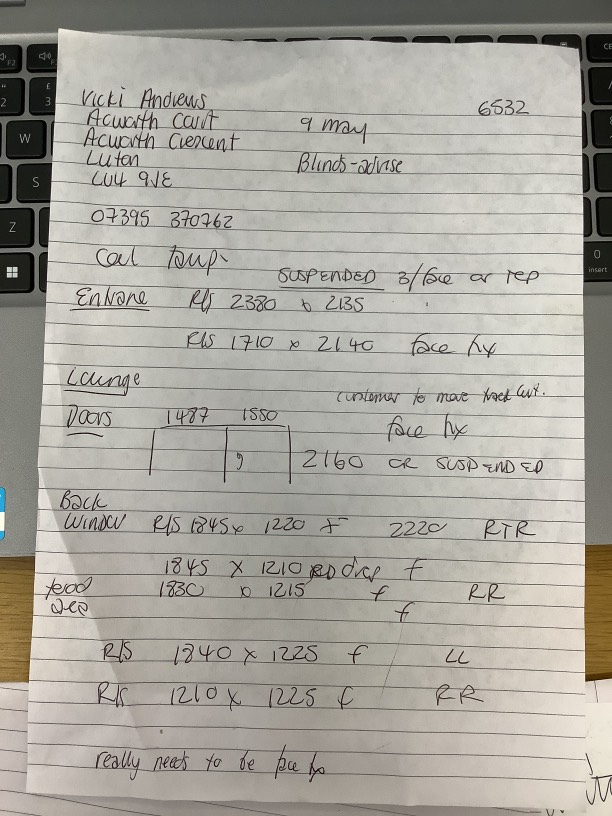 Vicki Andrews
6532
Acworth Court
9 may
Acworth Crescent
Luton
Blinds-advise
LU4 9JE
07395 370762
SUSPENDED 3/face or rep
R/S 2380 x 2135
R/S 1710 x 2140 face fix
Lounge
customer to move track
Doors 1487 1550
face fix
2160 OR SUSPENDED
Back
Window R/S 1845 x 1220 F 2220 RTR
1845 x 1210 drop f
1830 x 1215 f RR
f
R/S 1840 x 1225 f LL
R/S 1210 x 1225 f RR
really needs to be face fix